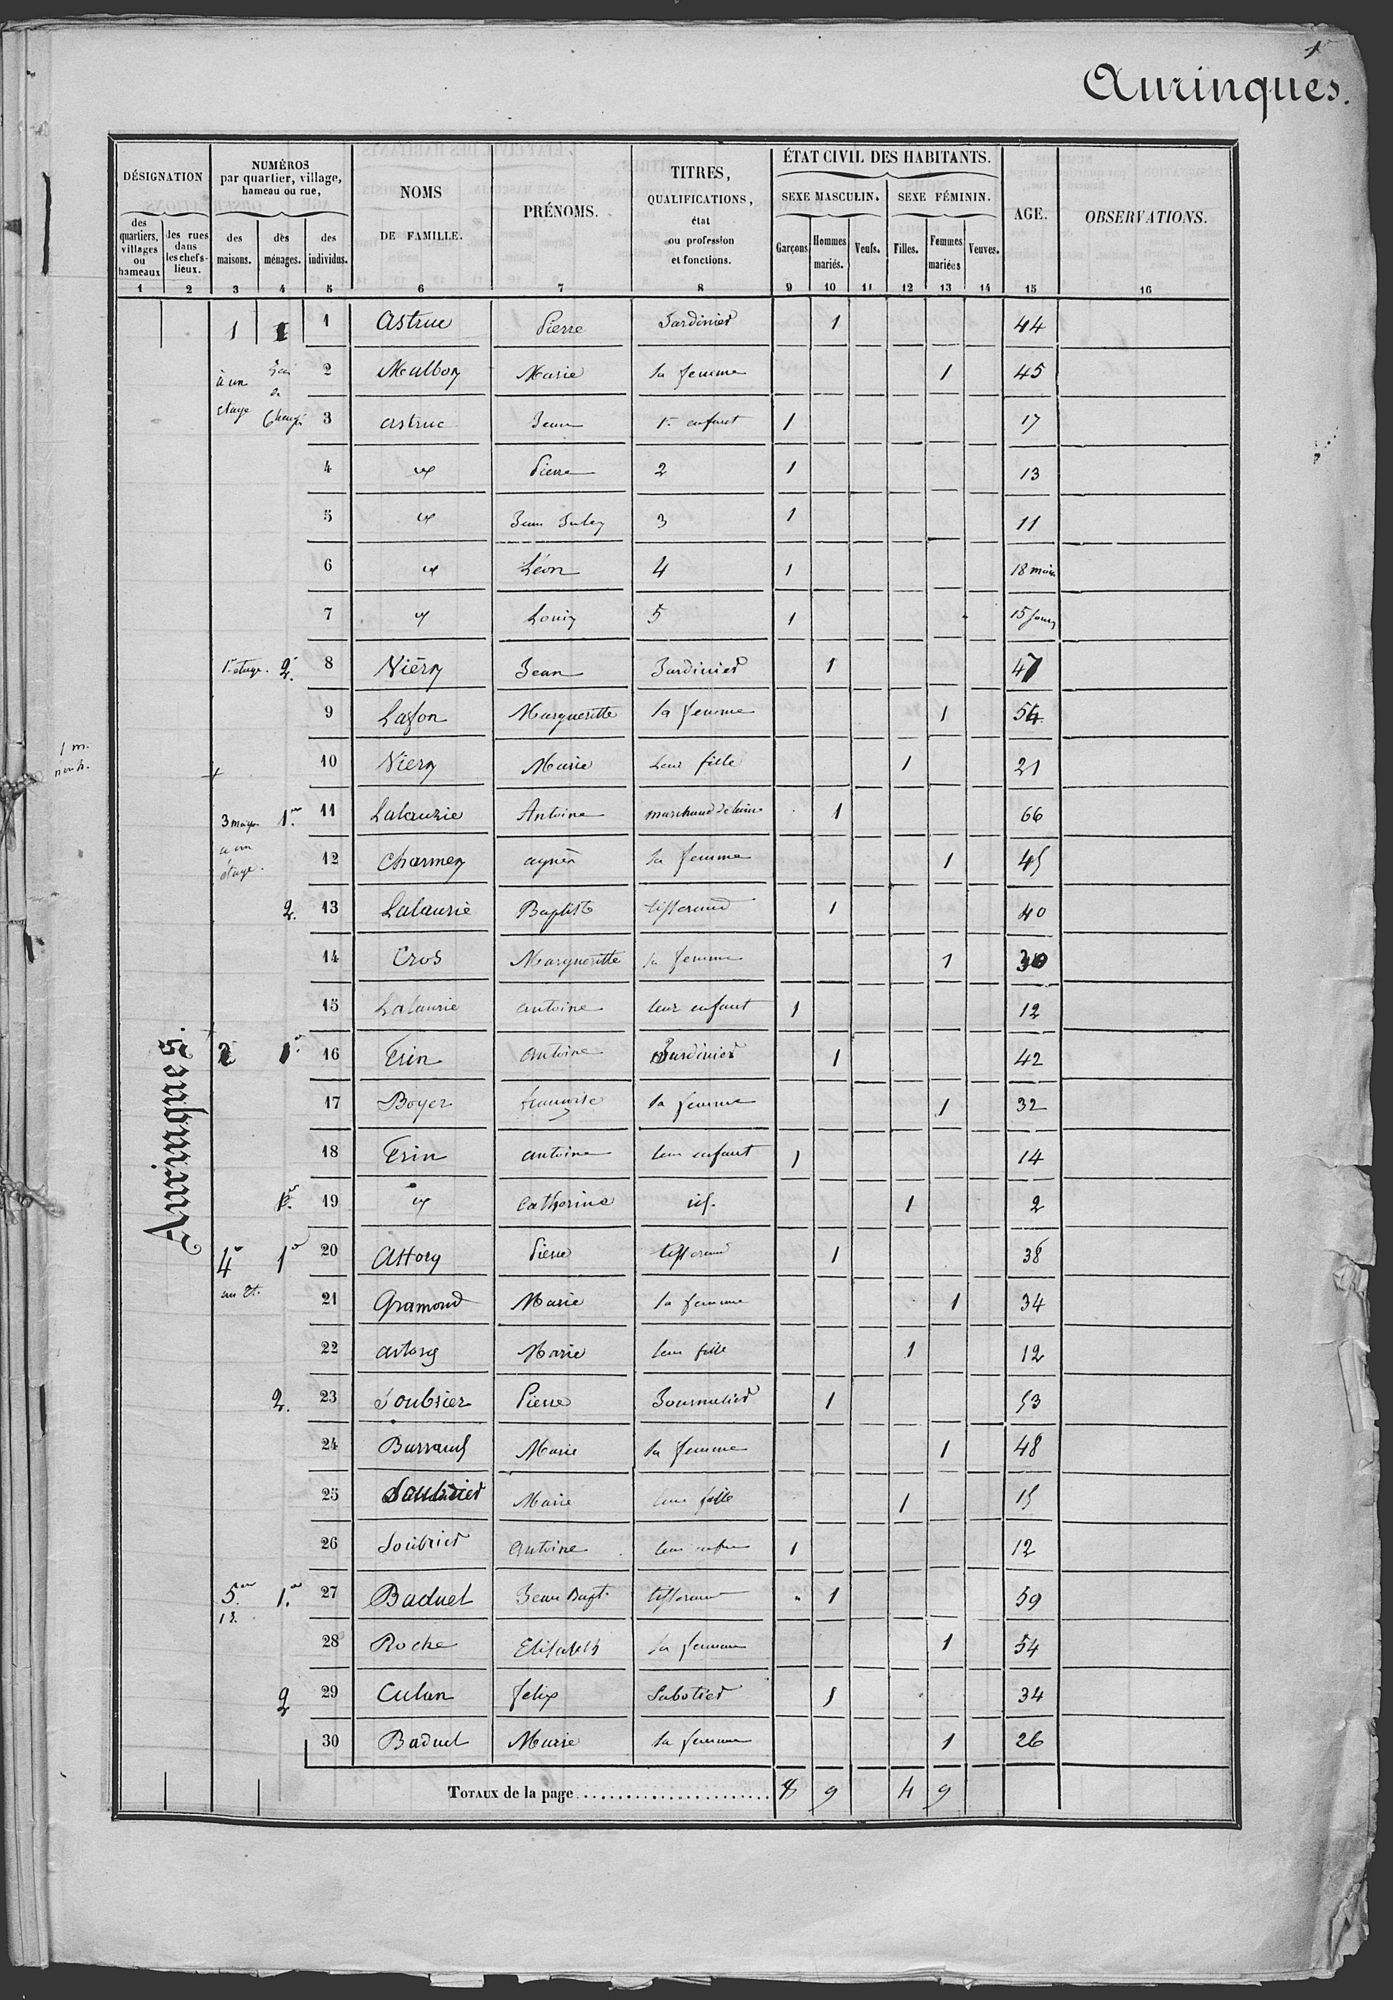 1
Aurinques.
DÉSIGNATION
NUMÉROS
par quartier, village,
hameau ou rue,
NOMS
DE FAMILLE.
PRÉNOMS.
TITRES,
QUALIFICATIONS,
état
ou profession
et fonctions.
ÉTAT CIVIL DES HABITANTS.
SEXE MASCULIN. SEXE FÉMININ.
AGE.
OBSERVATIONS.
des
quartiers,
villages
ou
hameaux
les rues
dans
les chefs-
lieux.
des
maisons.
des
ménages.
des
individus.
Garçons
Hommes
mariés.
Veufs.
Filles.
Femmes
mariées
Veuves.
1 2 3 4 5 6 7 8 9 10 11 12 13 14 15 16
Aurinques.
1 1 1 Astruc Pierre Jardinier 1 44
à un
etage
2 Malbon Marie sa femme 1 45
3 astruc Jean 1er enfant 1 17
4 Pierre 2 1 13
5 Jean 3 1 11
6 Léon 4 1 18 mois
7 Louis 5 1 15 jours
1r etage. 2. 8 Niérn Jean Jardinier 1 47
9 Lafon Margueritte sa femme 1 54
10 Niérn Marie leur fille 1 21
1 m.
3 1er 11 Lalaurie Antoine marchand de laine 1 66
a un
étage.
12 Charmen agnès sa femme 1 45
2. 13 Lalaurie Baptiste tisserand 1 40
14 Cros Margueritte sa femme 1 30
15 Lalaurie antoine leur enfant 1 12
2 1er 16 Trin antoine Jardinier 1 42
17 Boyer francoise sa femme 1 32
18 Trin antoine leur enfant 1 14
19 Catherine id. 1 2
4 1er 20 Astorg Pierre tisserand 1 38
un et.
21 Gramond Marie sa femme 1 34
22 astorg Marie leur fille 1 12
2. 23 Soubrier Pierre Journalier 1 53
24 Barraud Marie sa femme 1 48
25 Soubrier Marie leur fille 1 15
26 Soubrier antoine leur enfant 1 12
5 1er 27 Baduel Jean Bapt. tisserand 1 59
28 Roche Elisabeth sa femme 1 54
2 29 Culan felix Sabotier 1 34
30 Baduel Marie sa femme 1 26
TOTAUX de la page 8 9 4 9